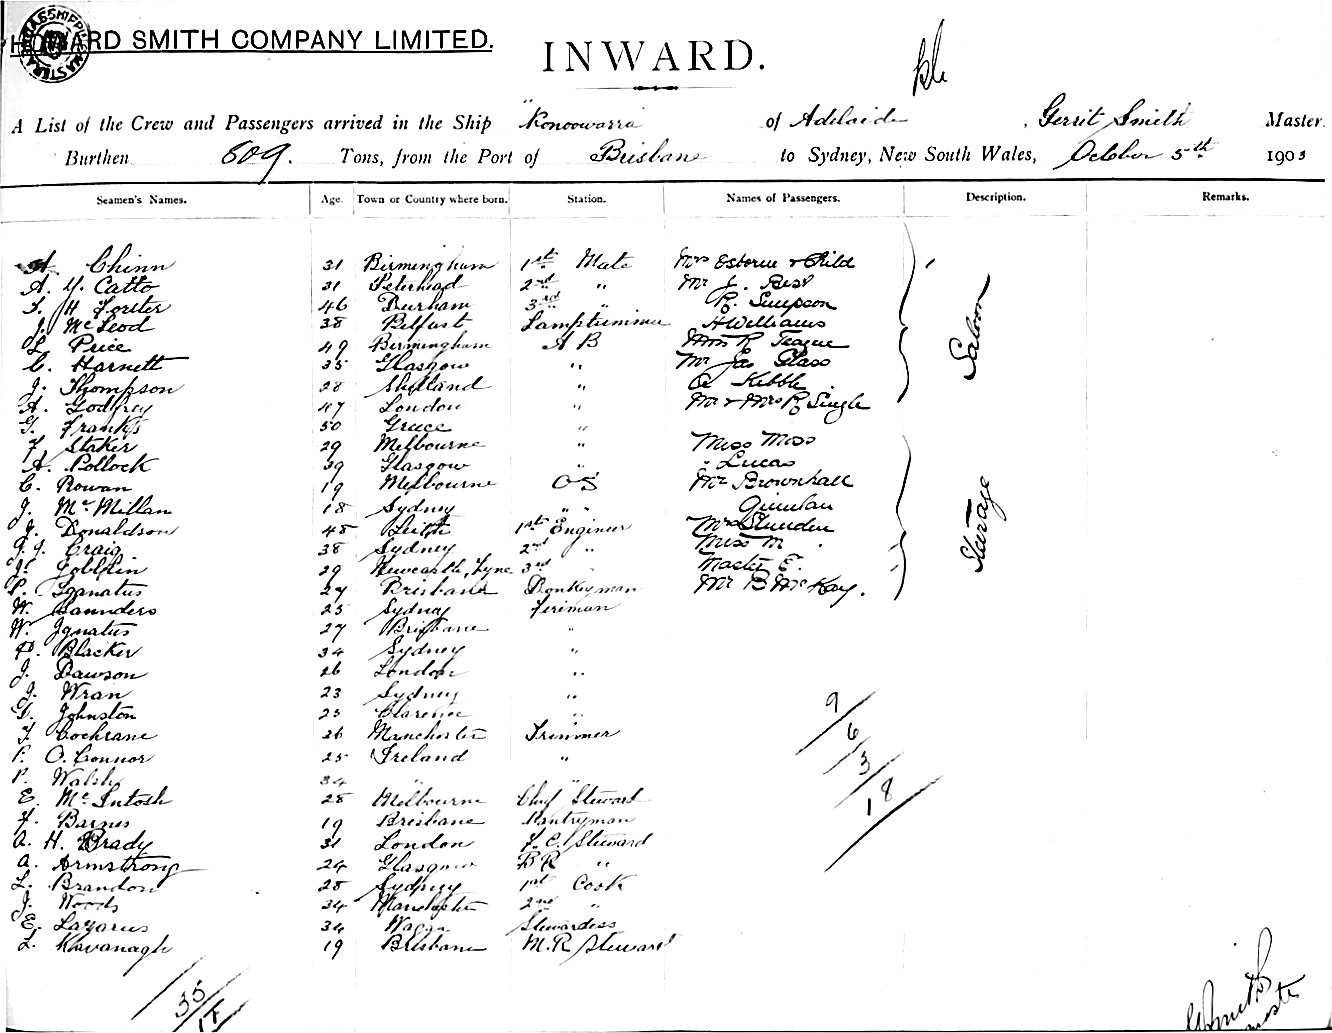 HOWARD SMITH COMPANY LIMITED.
INWARD.
A List of the Crew and Passengers arrived in the Ship "Konoowarra of Adelaide, Gerrit Smith Master
Burthen 509. Tons, from the Port of Brisbane to Sydney, New South Wales, October 5th 1903
Seamen's Names. Age. Town or Country where born. Station. Names of Passengers. Description. Remarks.
A. Chinn 31 Birmingham 1st Mate Mrs Osborne & Child
A. Y. Catto 31 Peterhead 2nd " Mr J. Best
T. H. Forster 46 Durham 3rd " R. Simpson
J. McLeod 38 Belfast Lamptrimmer H Williams
L. Price 49 Birmingham A B Mrs R Teague
C. Harnett 35 Glasgow " Mr Jas Glass
J. Thompson 28 Shetland " Kebble
A. Godfrey 47 London " Mr & Mrs R Single
Saloon
G. Franks 50 Greece "
F. Staker 29 Melbourne " Miss Moss
A. Pollock 39 Glasgow " " Lucas
C. Rowan 19 Melbourne OS Mr Brownhall
J. McMillan 18 Sydney " " Quinlan
J. Donaldson 48 Leith 1st Engineer Mrs
J. J. Craig 38 Sydney 2nd " Miss M. "
J. 29 Newcastle, Tyne 3rd " Master E. "
P. Ignatus 27 Brisbane Donkeyman Mr B McKay.
Steerage
W. Saunders 25 Sydney Fireman
W. Ignatus 27 Brisbane "
D. Blacker 34 Sydney "
J. Dawson 26 London "
J. Wran 23 Sydney "
D. Johnston 23 Clarence "
T. Cochrane 26 Manchester Trimmer
P. O. Connor 25 Ireland "
P. Walsh 34 " "
E. McIntosh 28 Melbourne Chief Steward
F. Barnes 19 Brisbane Pantryman
A. H. Brady 31 London F. C. Steward
A. Armstrong 24 Glasgow B R "
L. Brandon 28 Sydney 1st Cook
J. Woods 34 Manchester 2nd "
E. Lazarus 34 Wagga Stewardess
L. Kavanagh 19 Brisbane M. R Steward
9
6
3
18
35
18
G Smith
Master